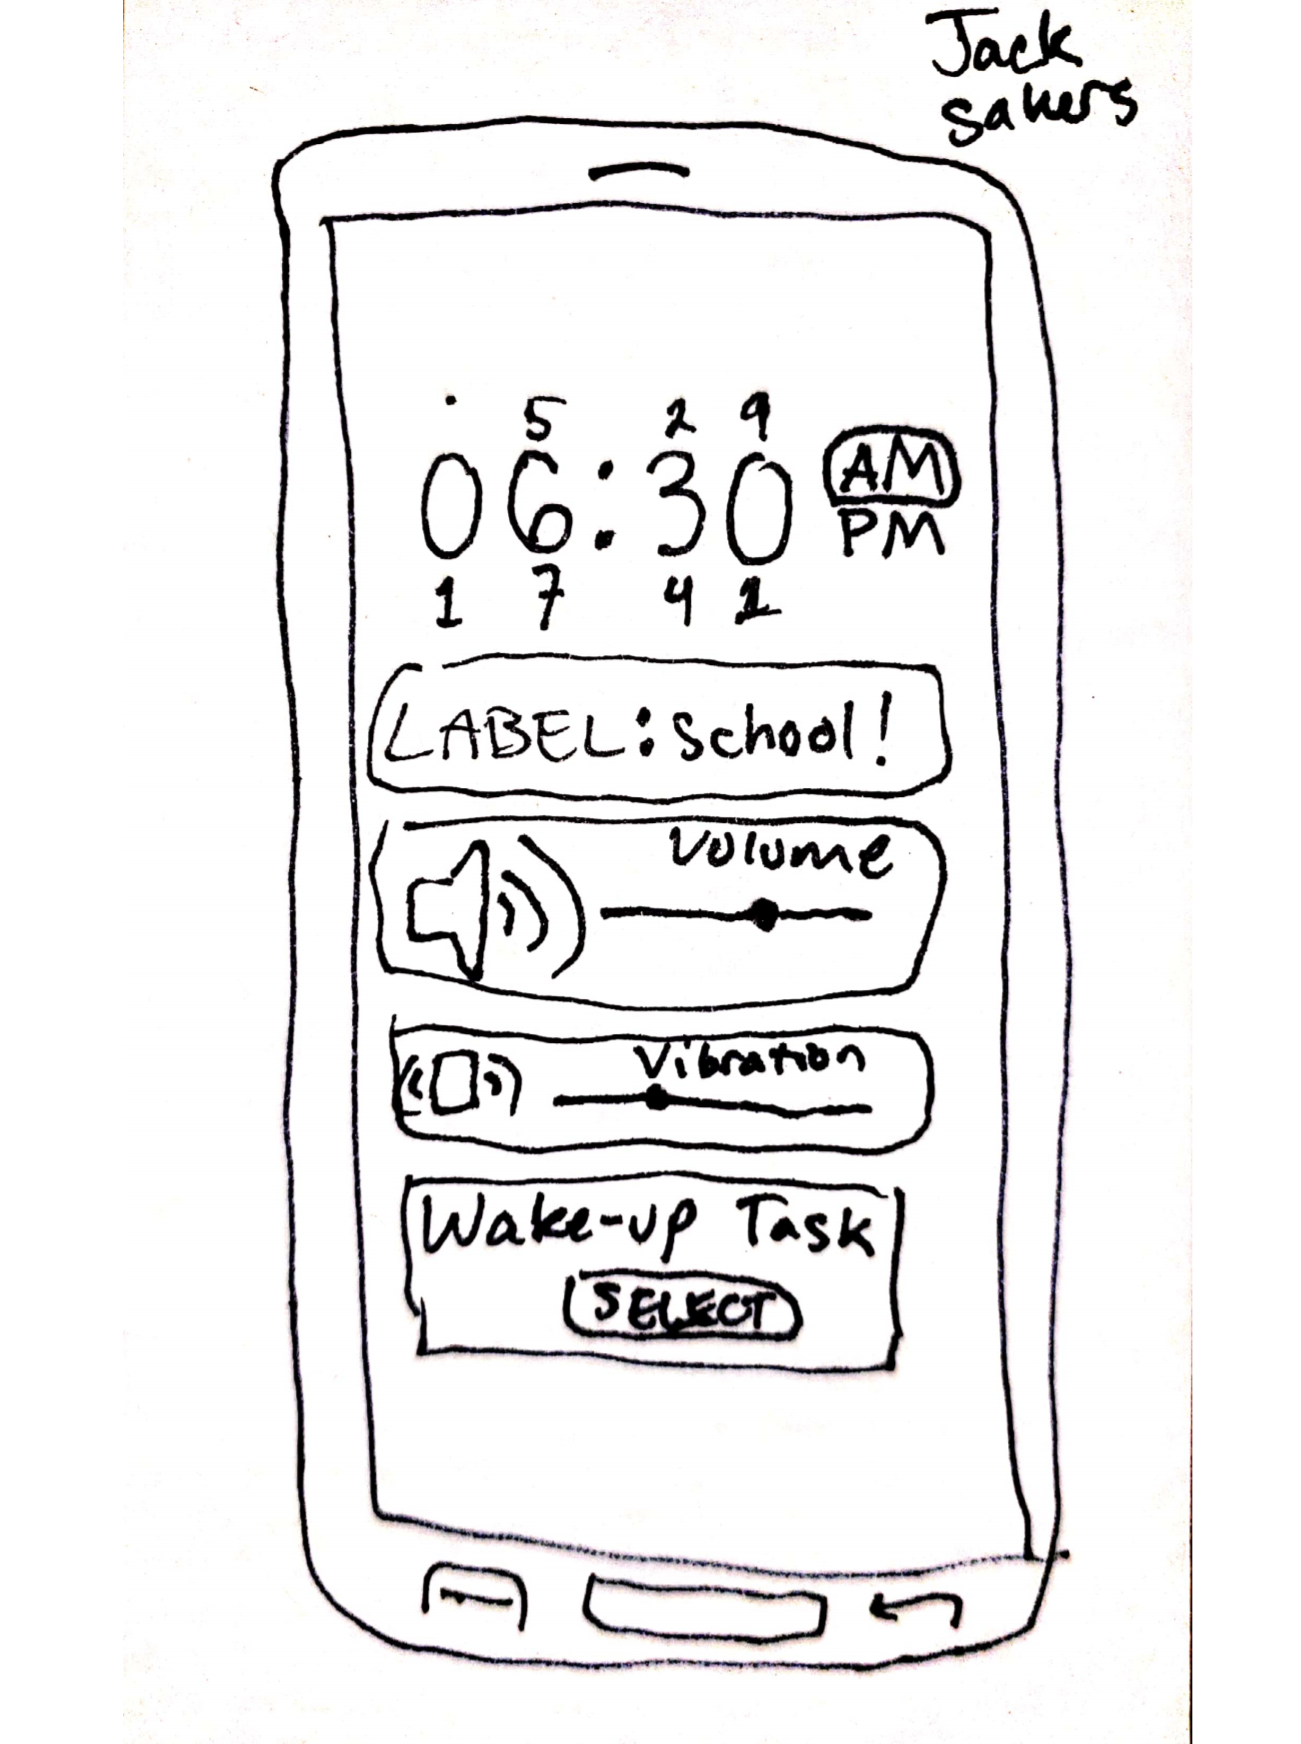 Jack
sakers
5 2 9
06:30 AM
PM
1 7 4 1
LABEL: School!
Volume
Vibration
Wake-up Task
SELECT